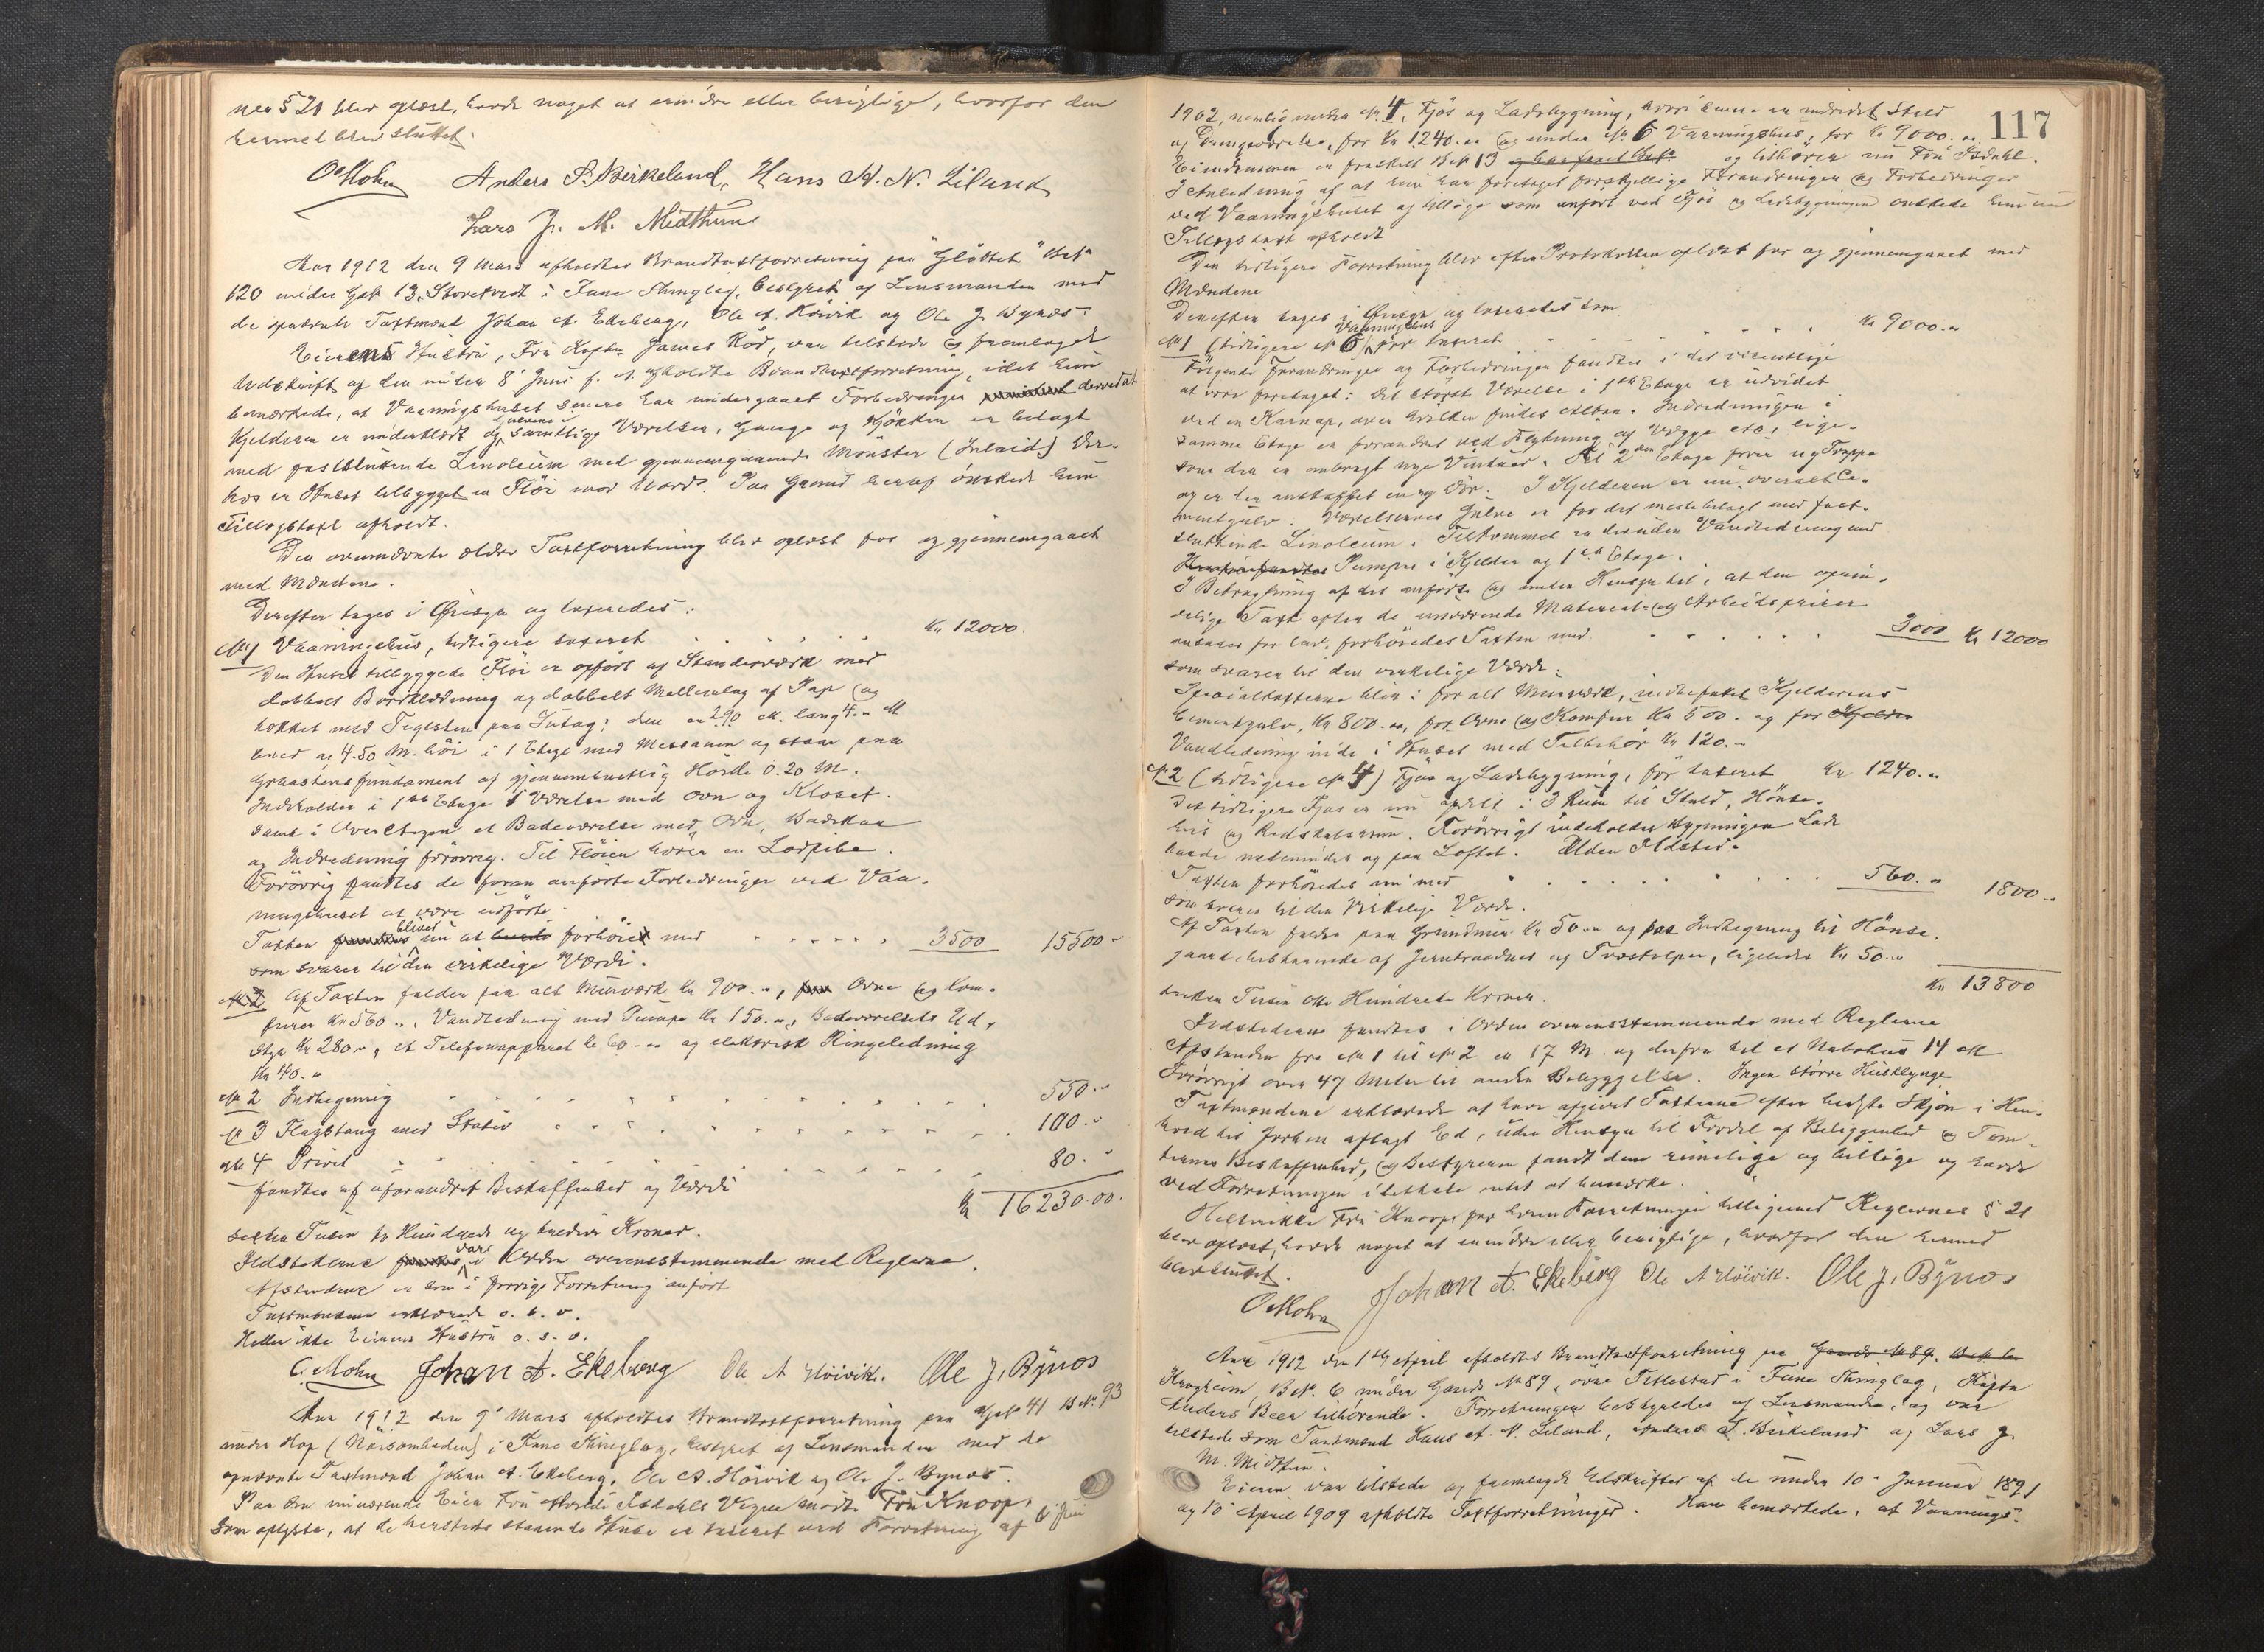 ner § 21 blev oplæst, havde noget at erindre eller berigtige, hvorfor den
hermed blev sluttet.
O Mohn Anders S. Birkeland, Hans H. N. Liland
Lars J. M. Midthun
Aar 1912 den 9 Mars afholdtes Brandtaxtforretning paa "Slåttet" Bn
120 under Gab 13, Storetvedt i Fane Thinglag, bestyret af Lensmanden med
de opnævnte Taxtmænd Johan A. Ekeberg, Ole A. Höivik og Ole J. Bynes.
Eierens Hustru, Fru Kaptn James Rød, var tilstede og fremlagde
Udskrift af den under 8 Juni f. A. afholdte Brandtaxtforretning, idet hun
bemærkede, at Vaaningshuset senere har undergaaet Forbedringer derved at
Kjelderen er underklædt og Gulvene i samtlige Værelser, Gange og Kjökken er belagt
med fastsluttende Linoleum med gjennemgaaende Mönster (Inlaid) Der-
hos er Huset tilbygget en Flöi mod Nord. Paa Grund heraf önskede hun
Tillægstaxt afholdt.
Den ovennævnte ældre Taxtforretning blev oplæst for og gjennemgaaet
med Mændene.
Derefter toges i Øiesyn og taxeredes:
No 1 Vaaningshus, tidligere taxeret Kr 12000.
Den Huset tilbyggede Flöi er opført af Stænderværk med
dobbelt Bordklædning og dobbelt Mellemlag af Pap og
tækket med Teglsten paa Sutag; den er 2.90 M. lang 4. " M
bred og 4.50 M. höi i 1 Etage med Messanin og staar paa
Graastens fundament af gjennemsnitlig Höide 0.20 M.
Indeholder i 1ste Etage 1 Værelse med Ovn og Kloset.
samt i Overetagen et Badeværelse med Ovn, Badekar
og Indredning forøvrig. Til Flöien hører en Lodpibe.
Forövrig fandtes de foran anførte Forbedringer ved Vaa-
ningshuset at være udførte.
Taxten fandtes bliver nu at forhöiet med 3500 15500 "
som svarer til den virkelige Værdi.
No 2 Af Taxten falder paa alt Murværk Kr 900. ", Ovne og Kom-
furer Kr 560 ", Vandledning med Pumpe Kr 150. ", Badeværelsets Ud-
styr Kr 280 ", et Telefonapparat Kr 60. " og elektrisk Ringeledning
Kr 40. "
No 2 Indhegning 550. "
No 3 Flagstang med Stativ 100. "
No 4 Privet 80. "
fandtes af uforandret Beskaffenhed og Værdi
Kr 16230.00.
sexten Tusen to Hundrede og tredive Kroner.
Ildstederne fandtes var i Orden overensstemmende med Reglerne.
Afstandene er som i forrige Forretning anført
Taxtmændene erklærede o. s. v.
Heller ikke Eierens Hustru o. s. v.
O. Mohn Johan A. Ekeberg Ole A Höivik. Ole J. Bynes
Aar 1912 den 9 Mars afholdtes Brandtaxtforretning paa Gab 41 B No 93
under Hop (Marsombeden) i Fane Thinglag, bestyret af Lensmanden med de
opnævnte Taxtmænd Johan A. Ekeberg, Ole A. Höivik og Ole J. Bynes.
Paa den nuværende Eier Fru Isdahls Vegne mødte Fru Knoop,
som oplyste, at de herstedt staaende Huse er taxeret ved Forretning af 6 Juni
117
1902, nemlig under No 4, Fjös og Ladebygning, hvori senere er indredet Stald
og Drengeværelse, for Kr 1240. " og under No 6 Vaaningshus, for Kr 9000. "
Eiendommen er fraskilt Bn 13 og tilhörer nu Fru Isdahl.
I Anledning af at hun har foretaget forskjellige Forandringer og Forbedringer
ved Vaaningshuset og tillige som anført ved Fjös og Ladebygningen önskede hun nu
Tillægstaxt afholdt
Den tidligere Forretning blev efter Protokollen oplæst for og gjennemgaaet med
Mændene
Derefter toges i Øiesyn og taxeredes som
No 1 (tidligere No 6) Vaaningshus för taxeret Kr 9000. "
Følgende Forandringer og Forbedringer fandtes i det væsentlige
at være foretaget: Det største Værelse i 1ste Etage er udvidet
ved en Karnap, over hvilken findes Altan. Indredningen i
samme Etage er forandret ved Flytning af Vægge etc, lige-
som der er anbragt nye Vinduer. Til 2den Etage fører ny Trappe
og er der anskaffet en ny Dör. I Kjelderen er nu overalt Ce-
mentgulv. Værelsernes Gulve er for det meste belagt med fast-
sluttende Linoleum. Tilkommet er desuden Vandledning med
Pumpe i Kjelder og 1ste Etage.
I Betragtning af det anførte og under Hensyn til, at den oprin-
delige Taxt efter de nuværende Material- og Arbeidspriser
ansaaes for lav, forhöiedes Taxten med 3000 Kr 12000
som svarer til den virkelige Værdi.
Specialtaxterne blir: for alt Murværk, indbefattet Kjelderens
Cementgulv, Kr 800. ", for Ovne og Komfur Kr 500. " og for
Vandledning inde i Huset med Tilbehör Kr 120. "
No 2 (tidligere No 4) Fjös og Ladebygning, för taxeret Kr 1240. "
Det tidligere Fjös er nu opdelt i 3 Rum til Stald, Hönse-
hus og Redskabsrum. Forövrigt indeholder Bygningen Lade
baade nedenunder og paa Loftet. Uden Ildsted.
Taxten forhöiedes nu med 560. " 1800 "
som svarer til den virkelige Værdi.
Af Taxten falder paa Grundmur Kr 50. " og paa Indhegning til Hönse-
gaard, bestaaende af Jerntraadnet og Træstolper, ligeledes Kr 50. "
Kr 13800
tretten Tusen otte Hundrede Kroner.
Ildstederne fandtes i Orden overensstemmende med Reglerne
Afstanden fra No 1 til No 2 er 17 M. og derfra til et Nabohus 14 M
Forövrigt over 47 Meter til anden Bebyggelse. Ingen större Husklynge
Taxtmændene erklærede at have afgivet Taxterne efter bedste Skjön i Hen-
hold til forhen aflagt Ed, uden Hensyn til Fordel af Beliggenhed og Tom-
ternes Beskaffenhed, og Bestyreren fandt dem rimelige og billige og havde
ved Forretningen i det hele intet at bemærke.
Hellerikke Fru Knoop, for hvem Forretningen tilligemed Reglernes § 21
blev oplæst, havde noget at erindre eller berigtige, hvorfor den hermed
blev sluttet.
O Mohn Johan A. Ekeberg Ole A Höivik. Ole J. Bynes
Aar 1912 den 1ste April afholdtes Brandtaxtforretning paa Gaards No 89. B No 6
Krogheim B No. 6 under Gaards No 89, övre Titlestad i Fane Thinglag, Kaptn
Anders Beer tilhörende. Forretningen bestyredes af Lensmanden, og var
tilstede som Taxtmænd Hans H. N. Liland, Anders S. Birkeland og Lars J.
M. Midthun.
Eieren var tilstede og fremlagde Udskrifter af de under 10 Januar 1891
og 10 April 1909 afholdte Taxtforretninger. Han bemærkede, at Vaanings-